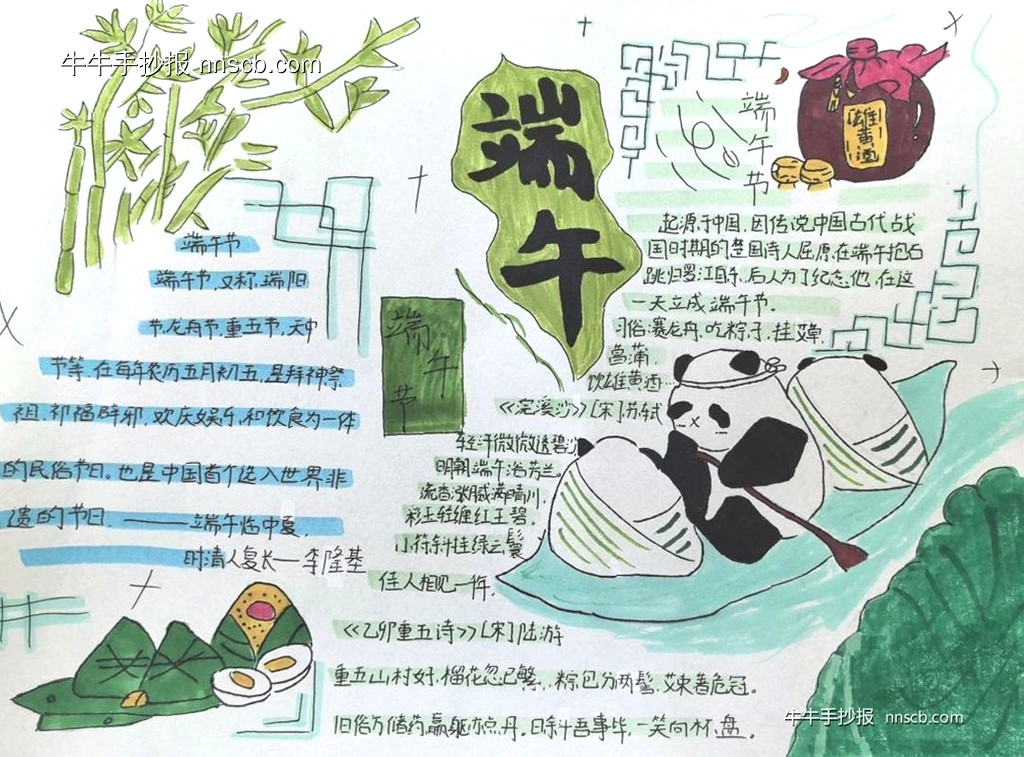 牛牛手抄报 nnscb.com
端午
端午节
雄黄酒
端午节
端午节
端午节,又称,端阳
节,龙舟节,重五节,天中
节等.在每年农历五月初五,是拜神祭
祖.祈福辟邪.欢庆娱乐.和饮食为一体
的民俗节日.也是中国首个选入世界非
遗的节日.——端午临中夏.
时清人复长—李隆基
起源于中国.因传说中国古代战
国时期的楚国诗人屈原.在端午抱石
跳汨罗江自尽.后人为了纪念他.在这
一天立成端午节.
习俗:赛龙舟.吃粽子.挂艾草.
菖蒲.
饮雄黄酒…
《浣溪沙》[宋]苏轼
轻汗微微透碧
明朝端午浴芳兰.
流香涨腻满晴川.
彩玉轻缠红玉碧.
小符斜挂绿云鬟
佳人相见一年.
《乙卯重五诗》[宋]陆游
重五山村好,榴花忽已繁.粽包分两髻,艾束著危冠。
旧俗方储药,羸躯亦点丹。日斜吾事毕,一笑向杯盘。
牛牛手抄报 nnscb.com